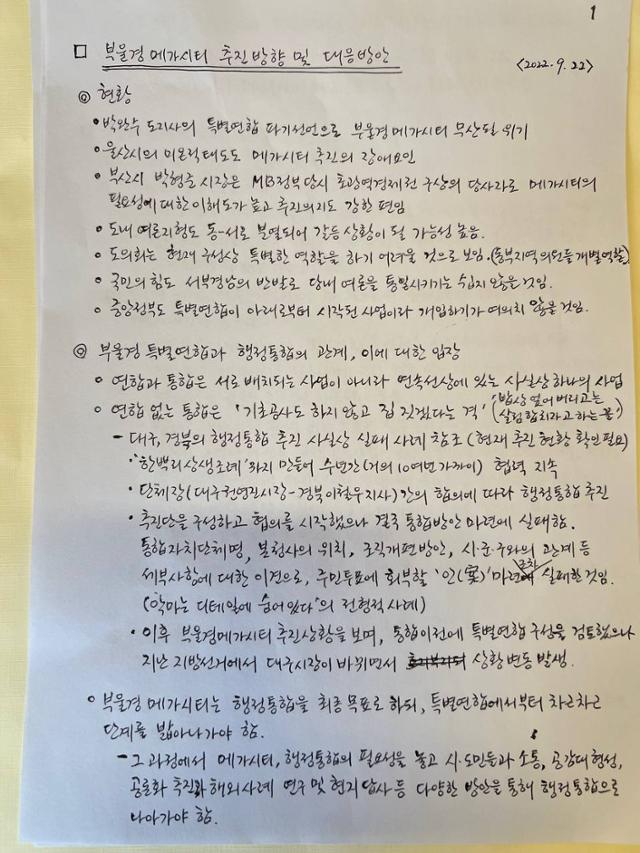 1
□ 부울경 메가시티 추진방향 및 대응방안
<2022. 9. 22>
◎ 현황
• 박완수 도지사의 특별연합 파기선언으로 부울경메가시티 무산될 위기
• 울산시의 미온적태도도 메가시티 추진의 장애요인
• 부산시 박형준 시장은 MB정부당시 초광역경제권 구상의 당사자라 메가시티의
필요성에 대한 이해도가 높고 추진의지도 강한 편임
• 도내 여론지형도 동-서로 분열되어 갈등상황이 될 가능성 높음.
• 도의회는 현재 구성상 특별한 역할을 하기 어려울 것으로 보임. (동부지역 의원들 개별역할)
• 국민의 힘도 서부경남의 반발로 당내 여론을 통일시키기는 쉽지 않을것임.
• 중앙정부도 특별연합이 아래로부터 시작된 사업이라 개입하기가 여의치 않을것임.
◎ 부울경 특별연합과 행정통합의 관계, 이에 대한 입장
• 연합과 통합은 서로 배치되는 사업이 아니라 연속선상에 있는 사실상 하나의 사업
• 연합 없는 통합은 '기초공사도 하지 않고 집 짓겠다는 격' (밥상 엎어버리고는 살림합치자고 하는 꼴)
- 대구, 경북의 행정통합 추진 사실상 실패 사례 참조 (현재 추진 현황 확인필요)
• '한뿌리상생조례'까지 만들어 수년간(거의 10여년 가까이) 협력 지속
• 단체장(대구권영진시장-경북이철우지사)간의 합의에 따라 행정통합 추진
• 추진단을 구성하고 협의를 시작했으나 결국 통합방안 마련에 실패함.
통합자치단체명, 본청사의 위치, 조직개편방안, 시·군·구와의 관계 등
세부사항에 대한 이견으로, 주민투표에 회부할 '안(案)' 마련조차 실패한것임.
('악마는 디테일에 숨어있다'의 전형적 사례)
• 이후 부울경메가시티 추진상황을 보며, 통합이전에 특별연합 구성을 검토했으나
지난 지방선거에서 대구시장이 바뀌면서 상황 변동 발생.
• 부울경 메가시티는 행정통합을 최종 목표로 하되, 특별연합에서부터 차근차근
단계를 밟아나가야 함.
- 그 과정에서 메가시티, 행정통합의 필요성을 놓고 시·도민들과 소통, 공감대 형성,
공론화 추진과 해외사례 연구 및 현지 답사 등 다양한 방안을 통해 행정통합으로
나아가야 함.